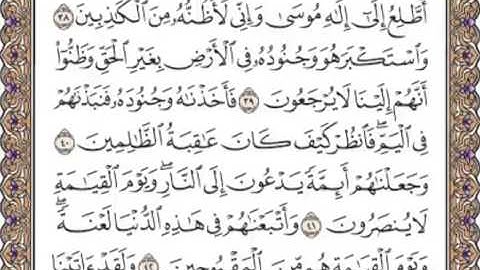 أَطَّلِعُ إِلَىٰٓ إِلَٰهِ مُوسَىٰ وَإِنِّي لَأَظُنُّهُۥ مِنَ ٱلْكَٰذِبِينَ ٣٨
وَٱسْتَكْبَرَ هُوَ وَجُنُودُهُۥ فِي ٱلْأَرْضِ بِغَيْرِ ٱلْحَقِّ وَظَنُّوٓا۟
أَنَّهُمْ إِلَيْنَا لَا يُرْجَعُونَ ٣٩ فَأَخَذْنَٰهُ وَجُنُودَهُۥ فَنَبَذْنَٰهُمْ
فِي ٱلْيَمِّ ۖ فَٱنظُرْ كَيْفَ كَانَ عَٰقِبَةُ ٱلظَّٰلِمِينَ ٤٠
وَجَعَلْنَٰهُمْ أَئِمَّةً يَدْعُونَ إِلَى ٱلنَّارِ ۖ وَيَوْمَ ٱلْقِيَٰمَةِ
لَا يُنصَرُونَ ٤١ وَأَتْبَعْنَٰهُمْ فِي هَٰذِهِ ٱلدُّنْيَا لَعْنَةً ۖ
وَيَوْمَ ٱلْقِيَٰمَةِ هُم مِّنَ ٱلْمَقْبُوحِينَ ٤٢ وَلَقَدْ ءَاتَيْنَا